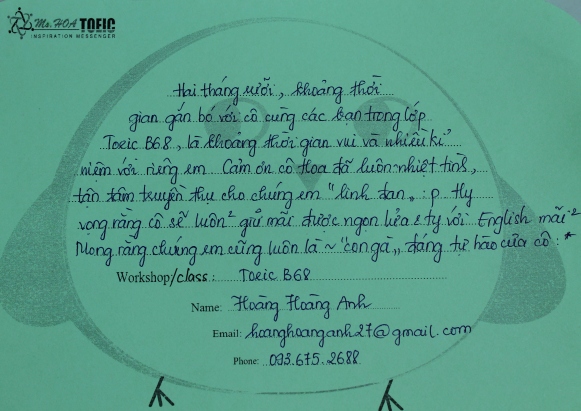 Ms. HOA TOEIC
INSPIRATION MESSENGER
Hai tháng rưỡi, khoảng thời
gian gắn bó với cô cùng các bạn trong lớp
Toeic B68, là khoảng thời gian vui và nhiều kỉ
niệm với riêng em Cảm ơn cô Hoa đã luôn nhiệt tình,
tận tâm truyền thụ cho chúng em "linh đan" :p Hy
vọng rằng cô sẽ luôn² giữ mãi được ngọn lửa & ty với English mãi²
Mong rằng chúng em cũng luôn là ~ "con gà" đáng tự hào của cô :*
Workshop/class : Toeic B68
Name: Hoàng Hoàng Anh
Email: hoanghoanganh27@gmail.com
Phone: 093.675.2688